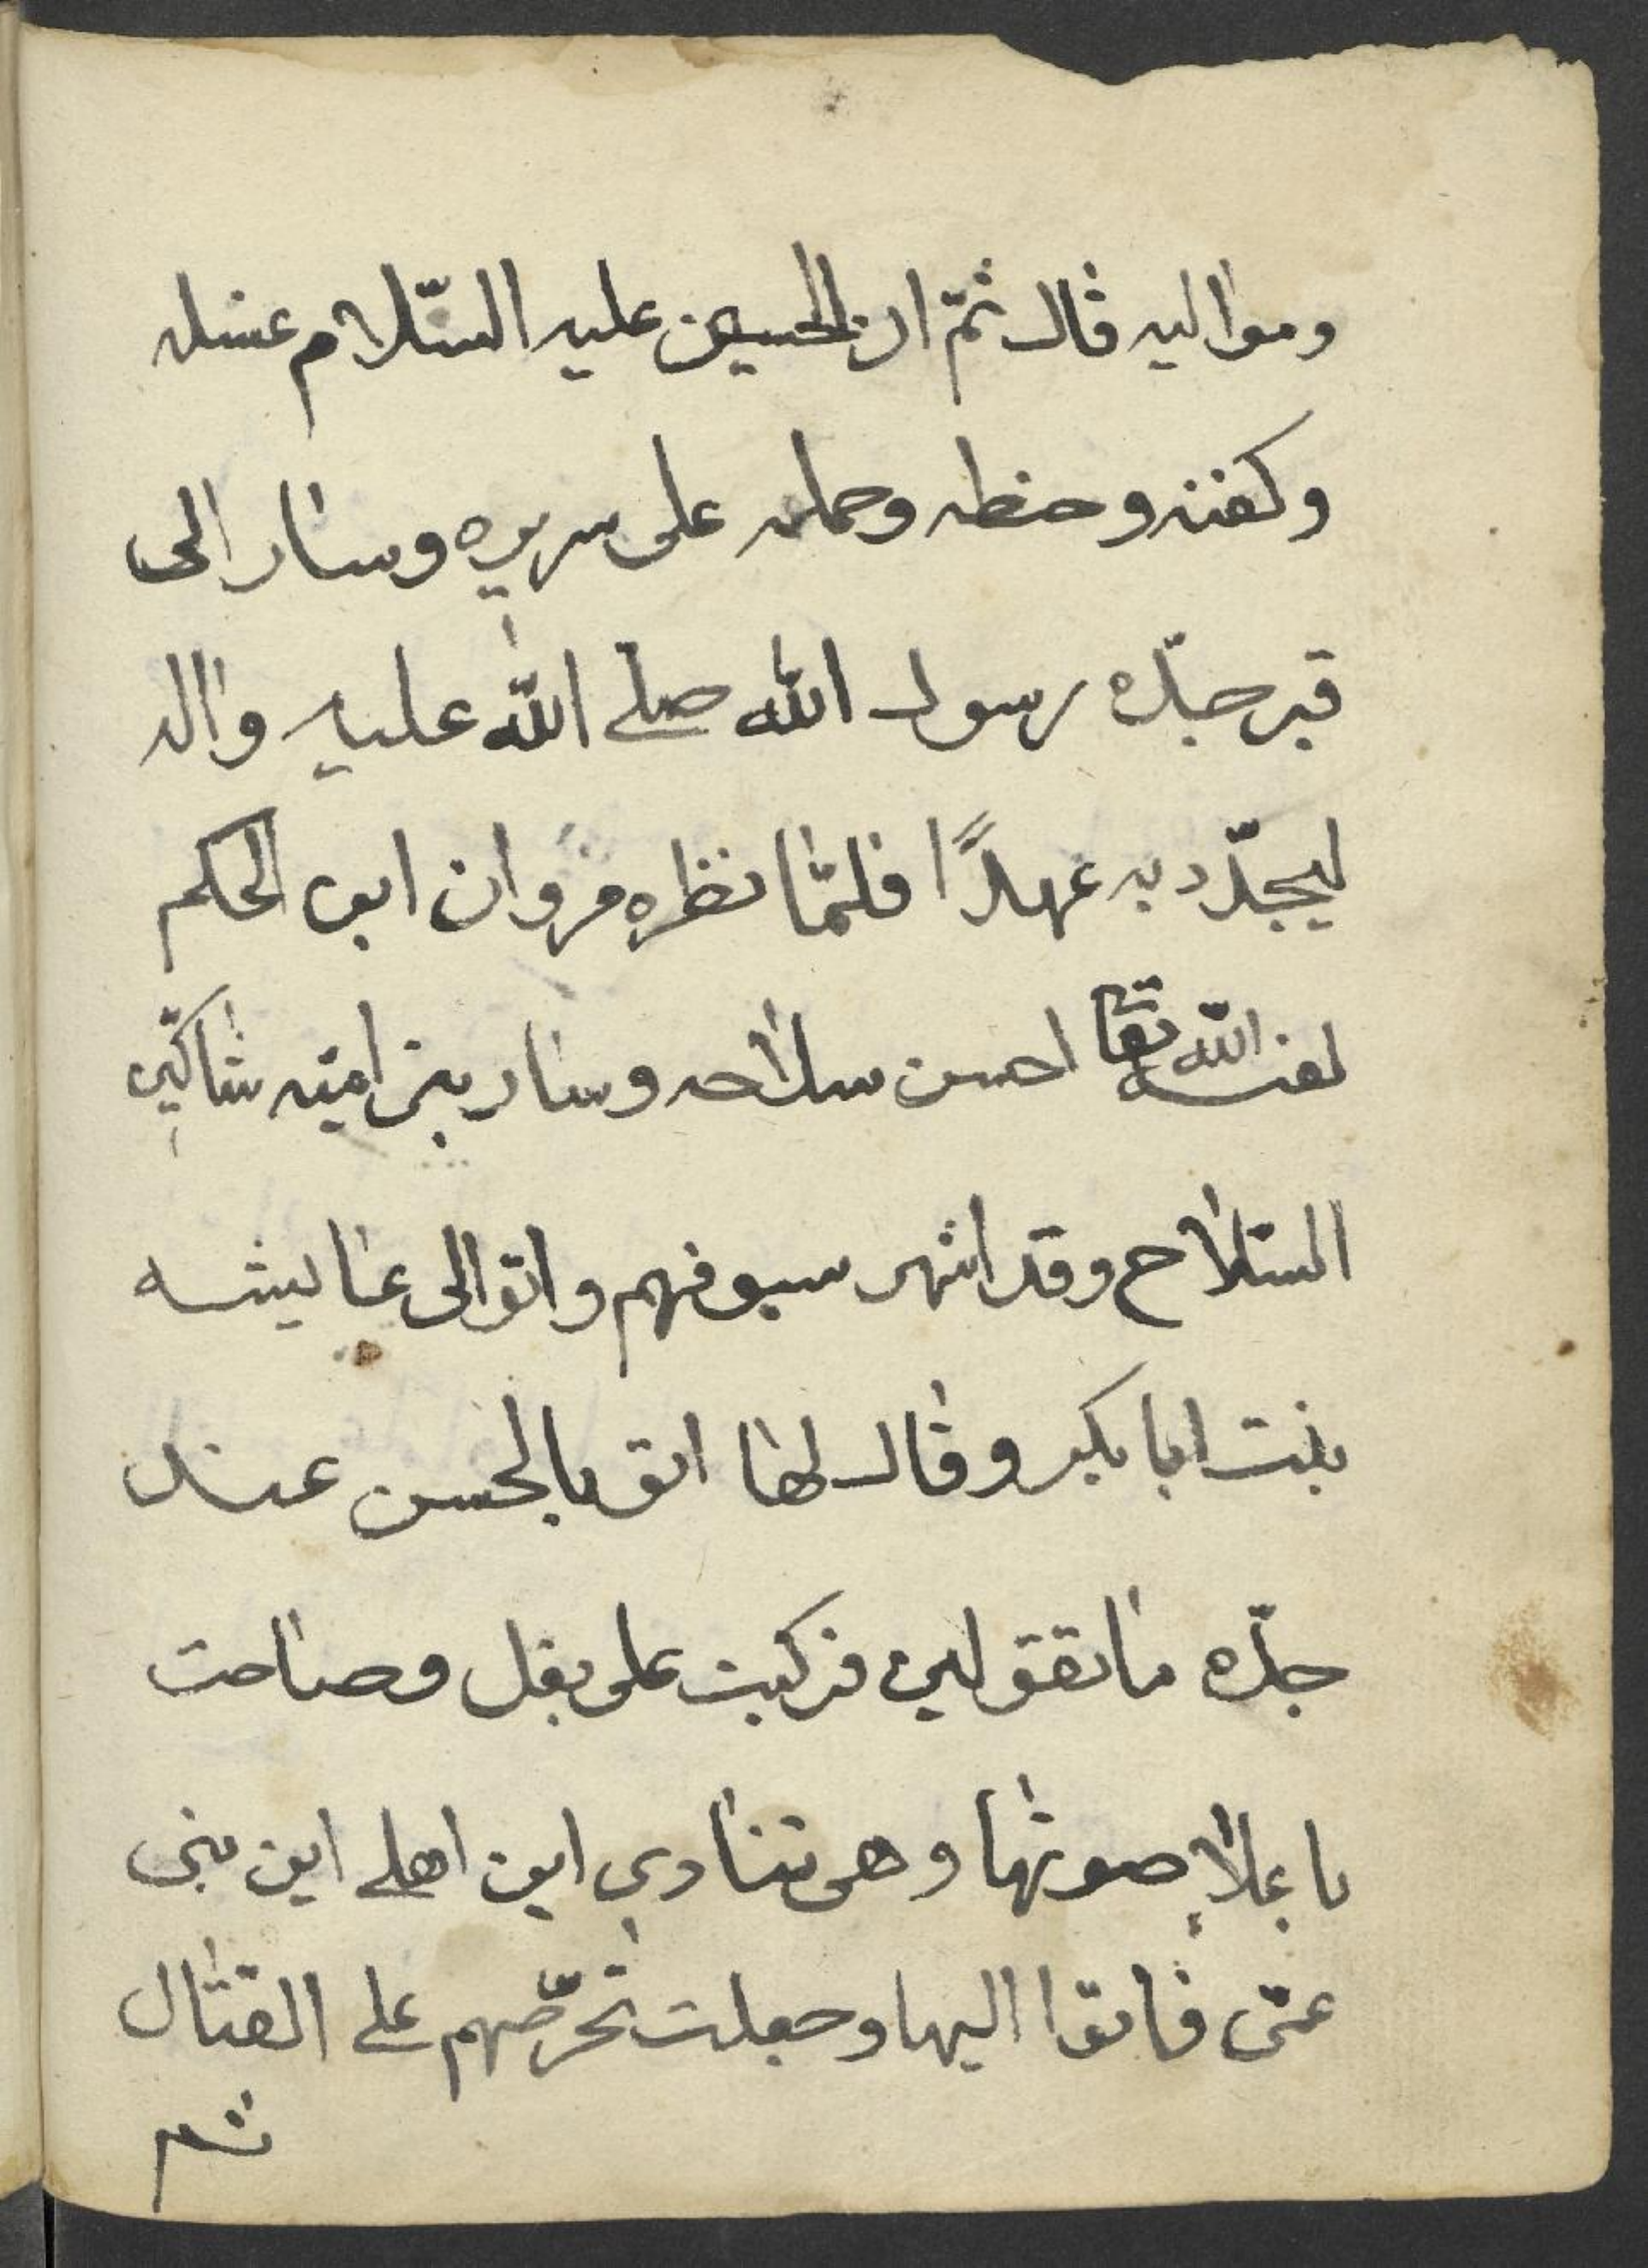 ومواليه قال ثمّ ان الحسين عليه السّلام غسله
وكفنه وحنطه وحمله على سريره وسار الى
قبر جدّه رسول الله صلى الله عليه واله
ليجدّد به عهدًا فلمّا نظره مروان ابن الحكم
لعنه الله تعا احسن سلاحه وسار بنى اميّه شاكين
السّلاح وقد اشهر سيوفهم واتو الى عايشه
بنت ابا بكر وقال لها اتو بالحسن عند
جدّه ما تقولين فركبت على بغل وصاحت
باعلا صوتها وهى تنادي اين اهلي اين بنى
عمّى فاتوا اليها وجعلت تحرّضهم على القتال
ثم